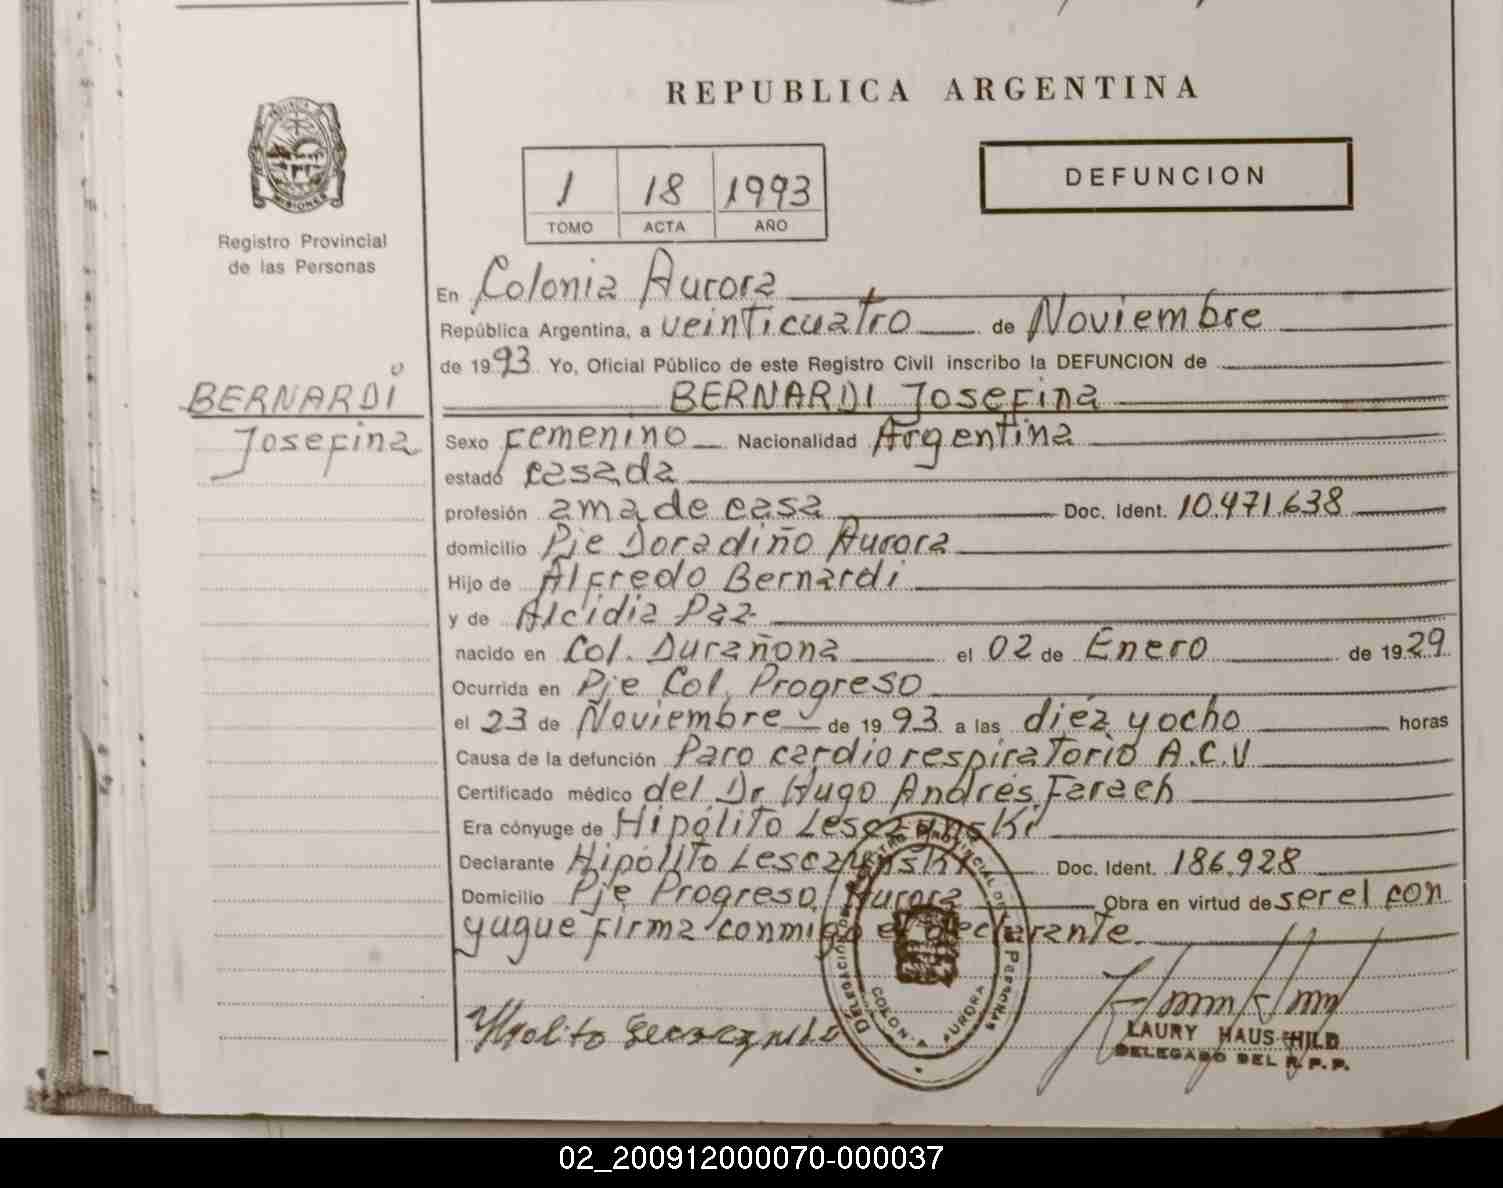 REPUBLICA ARGENTINA
MISIONES
Registro Provincial
de las Personas
1 18 1993
TOMO ACTA AÑO
DEFUNCION
En Colonia Aurora
República Argentina, a veinticuatro de Noviembre
de 1993 Yo, Oficial Público de este Registro Civil inscribo la DEFUNCION de
BERNARDI
Josefina
BERNARDI Josefina
Sexo Femenino Nacionalidad Argentina
estado casada
profesión ama de casa Doc. Ident. 10.471.638
domicilio Pje Doradiño Aurora
Hijo de Alfredo Bernardi
y de Alcidia Paz
nacido en Col. Durañona el 02 de Enero de 1929
Ocurrida en Pje Col. Progreso
el 23 de Noviembre de 1993 a las diez y ocho horas
Causa de la defunción Paro cardiorespiratorio A.C.V
Certificado médico del Dr Hugo Andrés Farach
Era cónyuge de Hipólito Lesczynski
Declarante Hipólito Lesczynski Doc. Ident. 186.928
Domicilio Pje Progreso/Aurora Obra en virtud de ser el con
yugue firma conmigo el declarante
COLONIA AURORA
LAURY HAUSCHILD
DELEGADO DEL R.P.P.
02_200912000070-000037